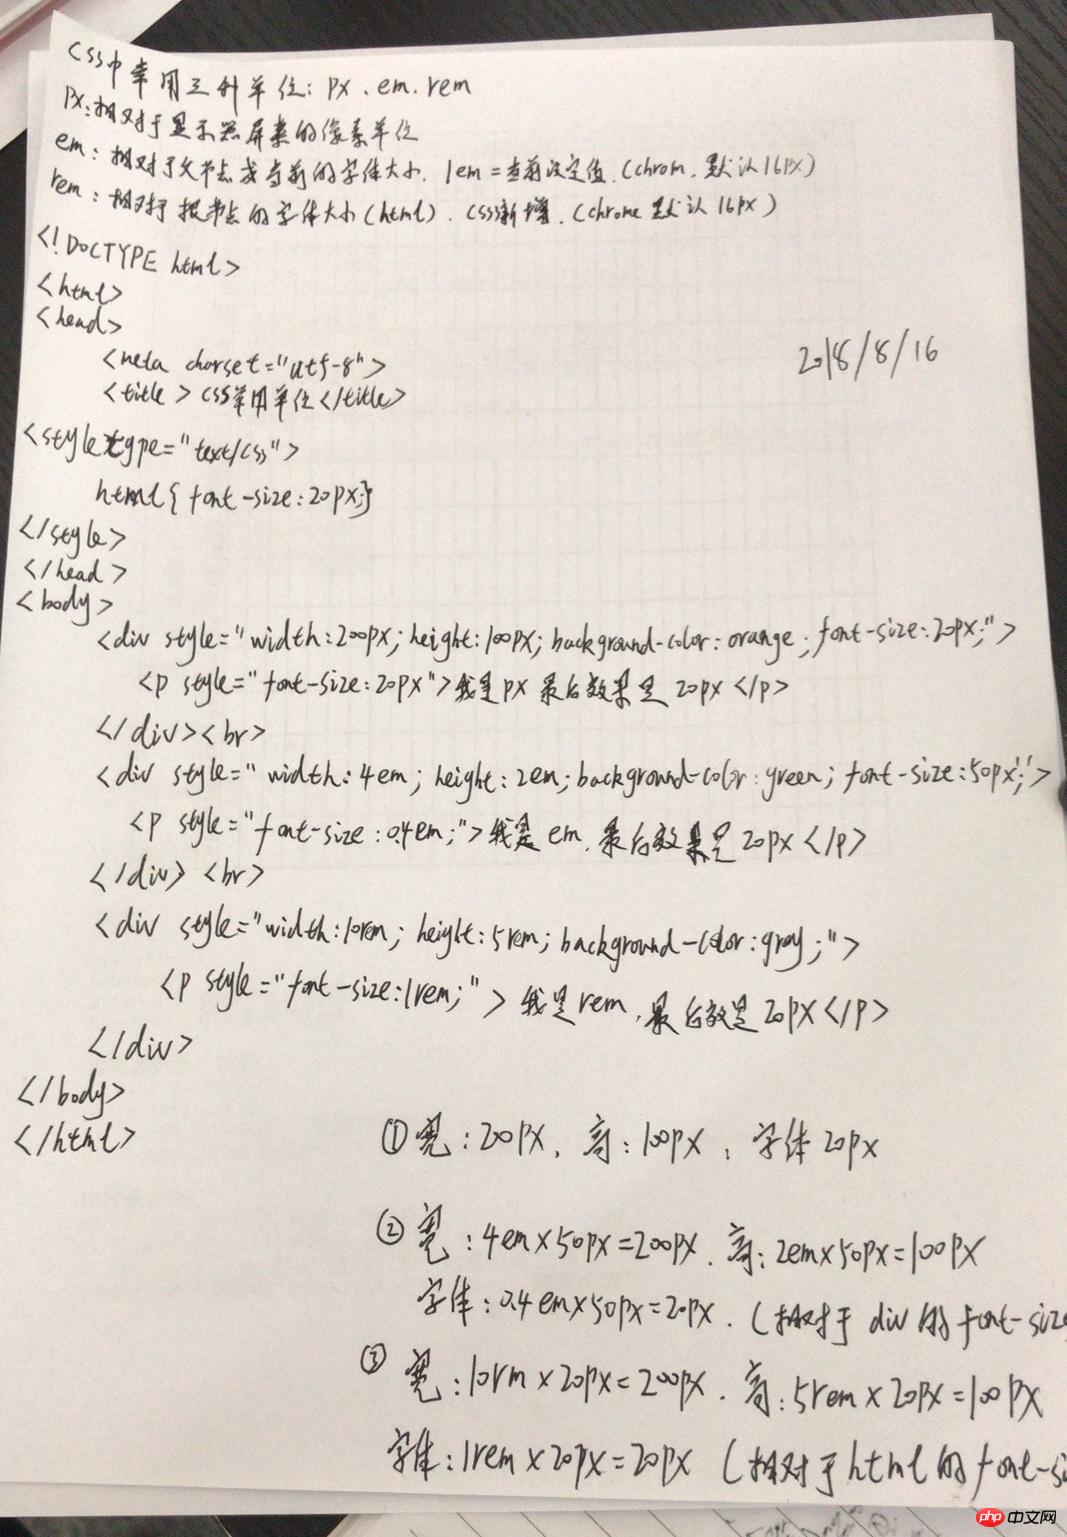 css中常用三种单位: px、em、rem
px: 相对于显示器屏幕的像素单位
em: 相对于父节点或当前的字体大小, 1em=当前设定值, (chrom, 默认16px)
rem: 相对于根节点的字体大小(html), css新增, (chrome默认16px)
<!DOCTYPE html>
<html>
<head>
<meta charset="utf-8">
2018/8/16
<title>css常用单位</title>
<style type="text/css">
html{font-size:20px;}
</style>
</head>
<body>
<div style="width:200px; height:100px; background-color:orange; font-size:20px;">
<p style="font-size:20px">我是px最后效果是20px</p>
</div><br>
<div style="width:4em; height:2em; background-color:green; font-size:50px;">
<p style="font-size:0.4em;">我是em, 最后效果是20px</p>
</div><br>
<div style="width:10rem; height:5rem; background-color:gray;">
<p style="font-size:1rem;">我是rem, 最后效是20px</p>
</div>
</body>
</html>
① 宽: 200px, 高: 100px, 字体20px
② 宽: 4em×50px=200px, 高: 2em×50px=100px
字体: 0.4em×50px=20px, (相对于div的font-size
③ 宽: 10rm×20px=200px, 高: 5rem×20px=100px
字体: 1rem×20px=20px (相对于html的font-si
php 中文网